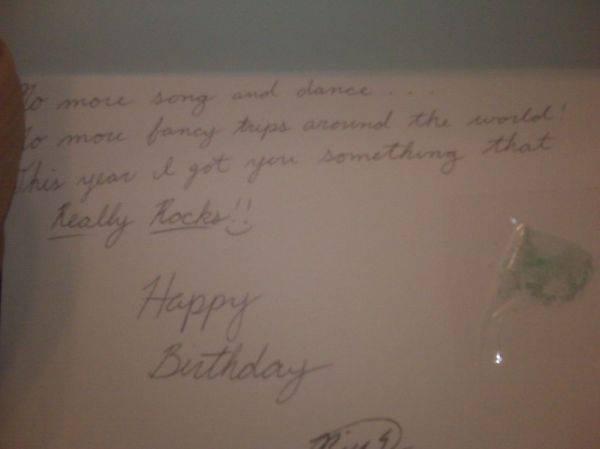 No more song and dance . . . .
No more fancy trips around the world!
This year I got you something that
Really Rocks!!
Happy
Birthday